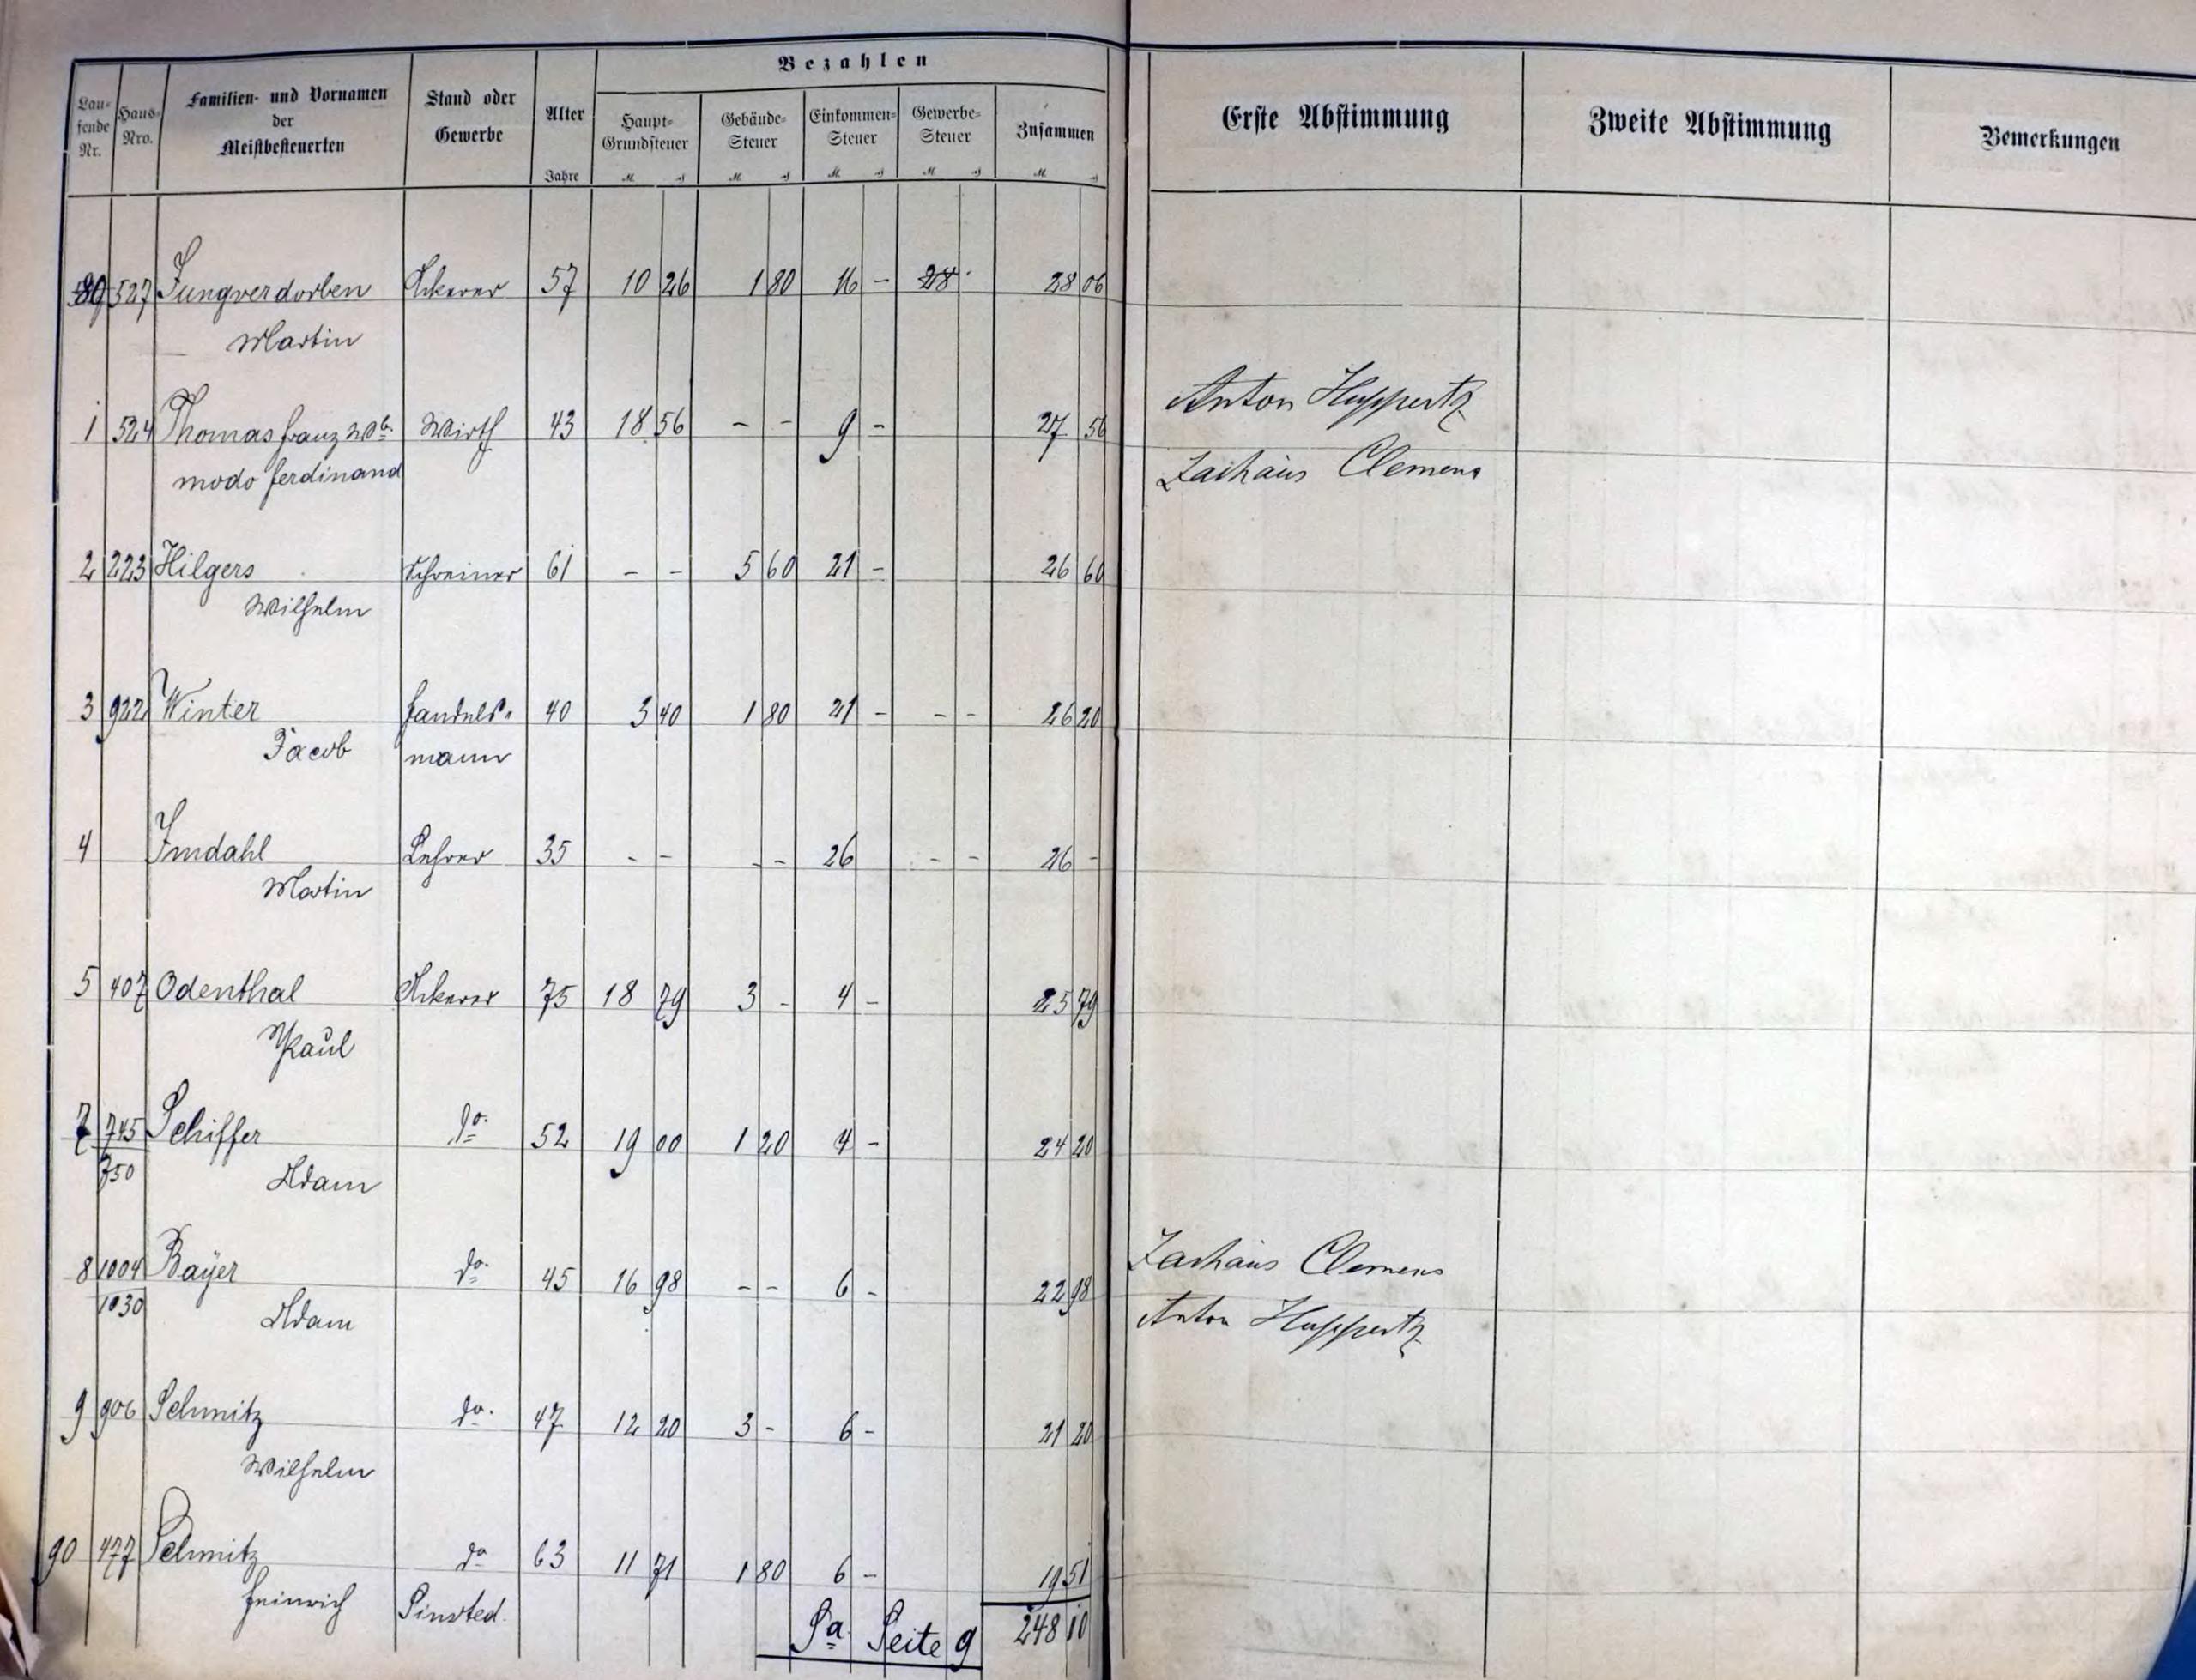 Bezahlen
Laufende Nr. Haus-Nro. Familien- und Vornamen der Meistbesteuerten Stand oder Gewerbe Alter Jahre Haupt-Grundsteuer Gebäude-Steuer Einkommen-Steuer Gewerbe-Steuer Zusammen Erste Abstimmung Zweite Abstimmung Bemerkungen
M ₰ M ₰ M ₰ M ₰ M ₰
80 527 Jungverdorben Ackerer 57 10 26 1 80 16 - 28 06
Martin
Anton Huppertz
1 524 Thomas Franz Wb. Wirth 43 18 56 - - 9 - 27 56
modo Ferdinand
Zachäus Clemens
2 223 Hilgers Schreiner 61 - - 5 60 21 - 26 60
Wilhelm
3 922 Winter Handels- 40 3 40 1 80 21 - - - 26 20
Jacob mann
4 Imdahl Lehrer 35 - - - - 26 - - 26 -
Martin
5 407 Odenthal Ackerer 75 18 79 3 - 4 - 25 79
Paul
7 745 Schiffer do. 52 19 00 1 20 4 - 24 20
750 Adam
Zachäus Clemens
8 1004 Bayer do. 45 16 98 - - 6 - 22 98
1030 Adam
Anton Huppertz
9 906 Schmitz do. 47 12 20 3 - 6 - 21 20
Wilhelm
90 477 Schmitz do 63 11 71 1 80 6 - 19 51
Heinrich Sinsted.
Sa Seite 9 248 10